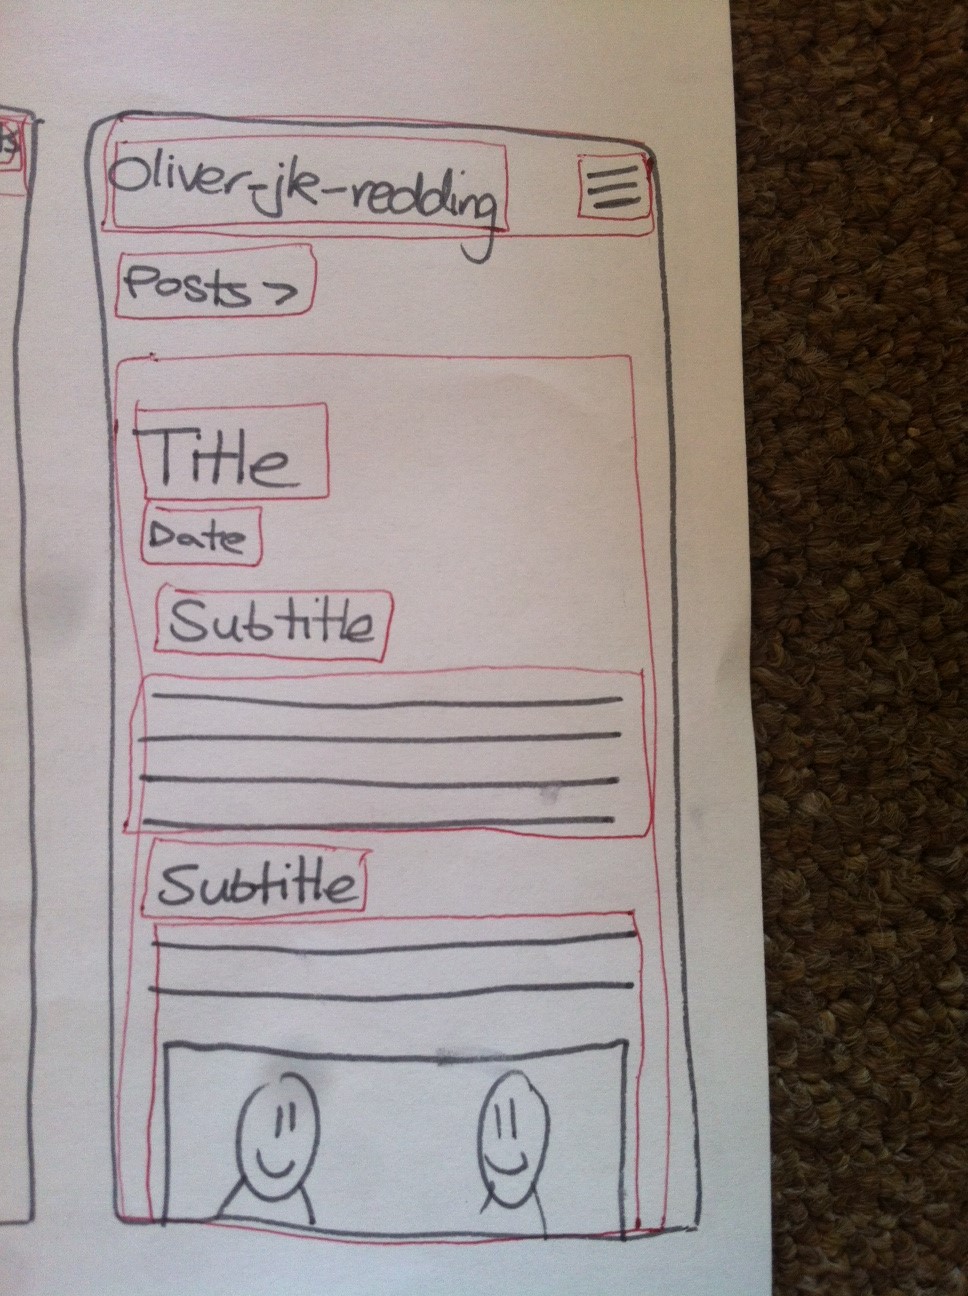 Oliver-jk-redding
Posts >
Title
Date
Subtitle
Subtitle